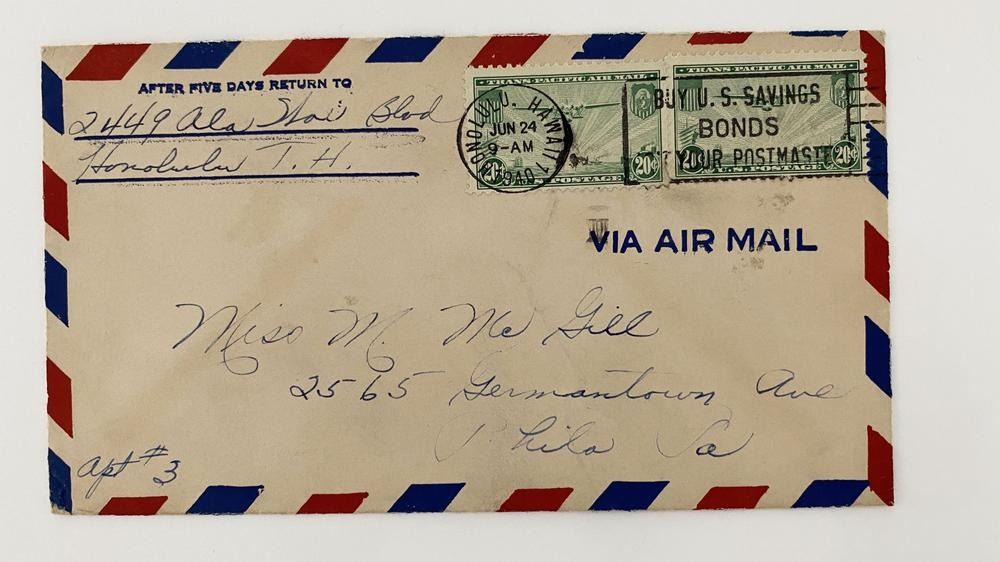 AFTER FIVE DAYS RETURN TO
2449 Ala Wai Blvd
Honolulu T. H.
TRANS-PACIFIC AIR MAIL
20¢ POSTAGE 20¢
TRANS-PACIFIC AIR MAIL
20¢ U.S. POSTAGE 20¢
HONOLULU. HAWAII
JUN 24
9-AM
1940
BUY U. S. SAVINGS
BONDS
YOUR POSTMASTE
VIA AIR MAIL
Miss M. Mc Gill
2565 Germantown Ave
Phila Pa
Apt #3